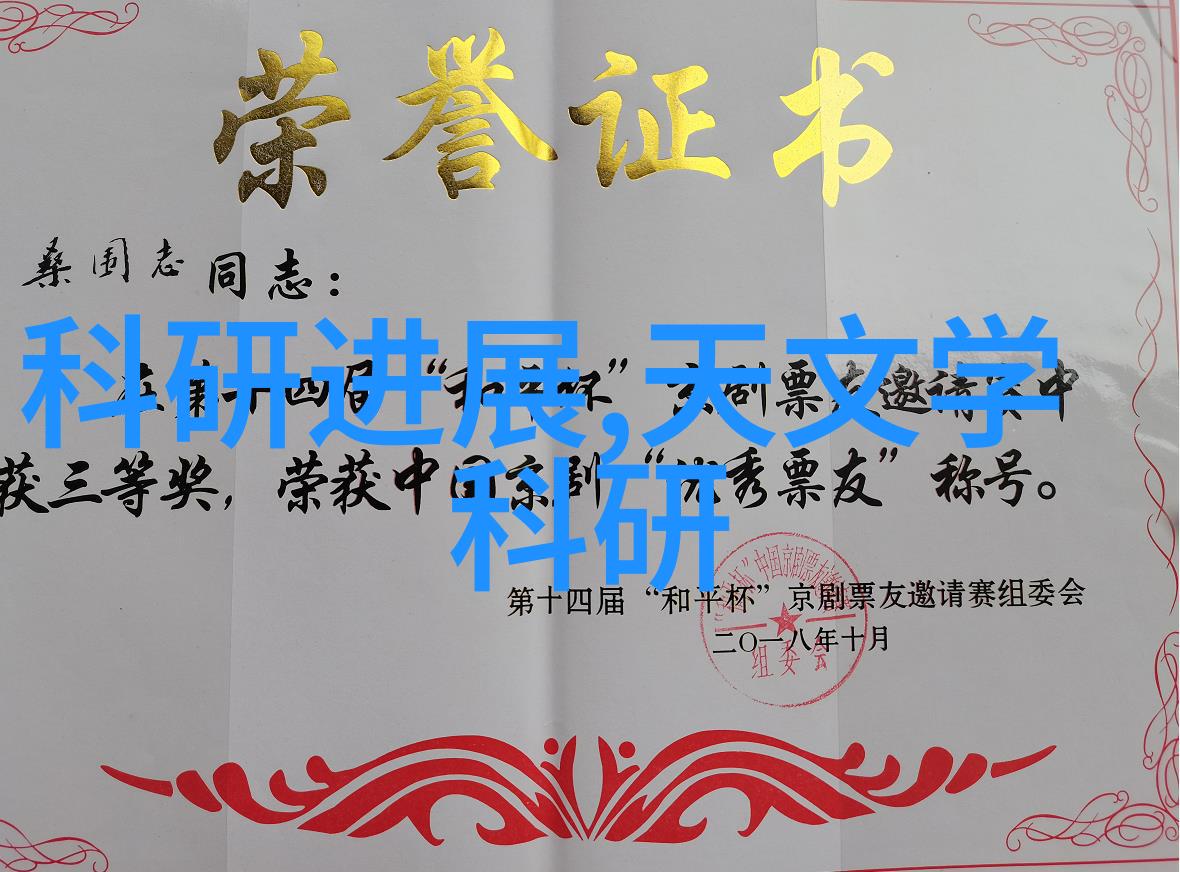 荣誉证书
桑国志 同志：
科研进展,天文学
在第十四届“和平杯”京剧票友邀请赛中
获三等奖，荣获中国京剧“优秀票友”称号。
科研
第十四届“和平杯”京剧票友邀请赛组委会
二〇一八年十月
组委会